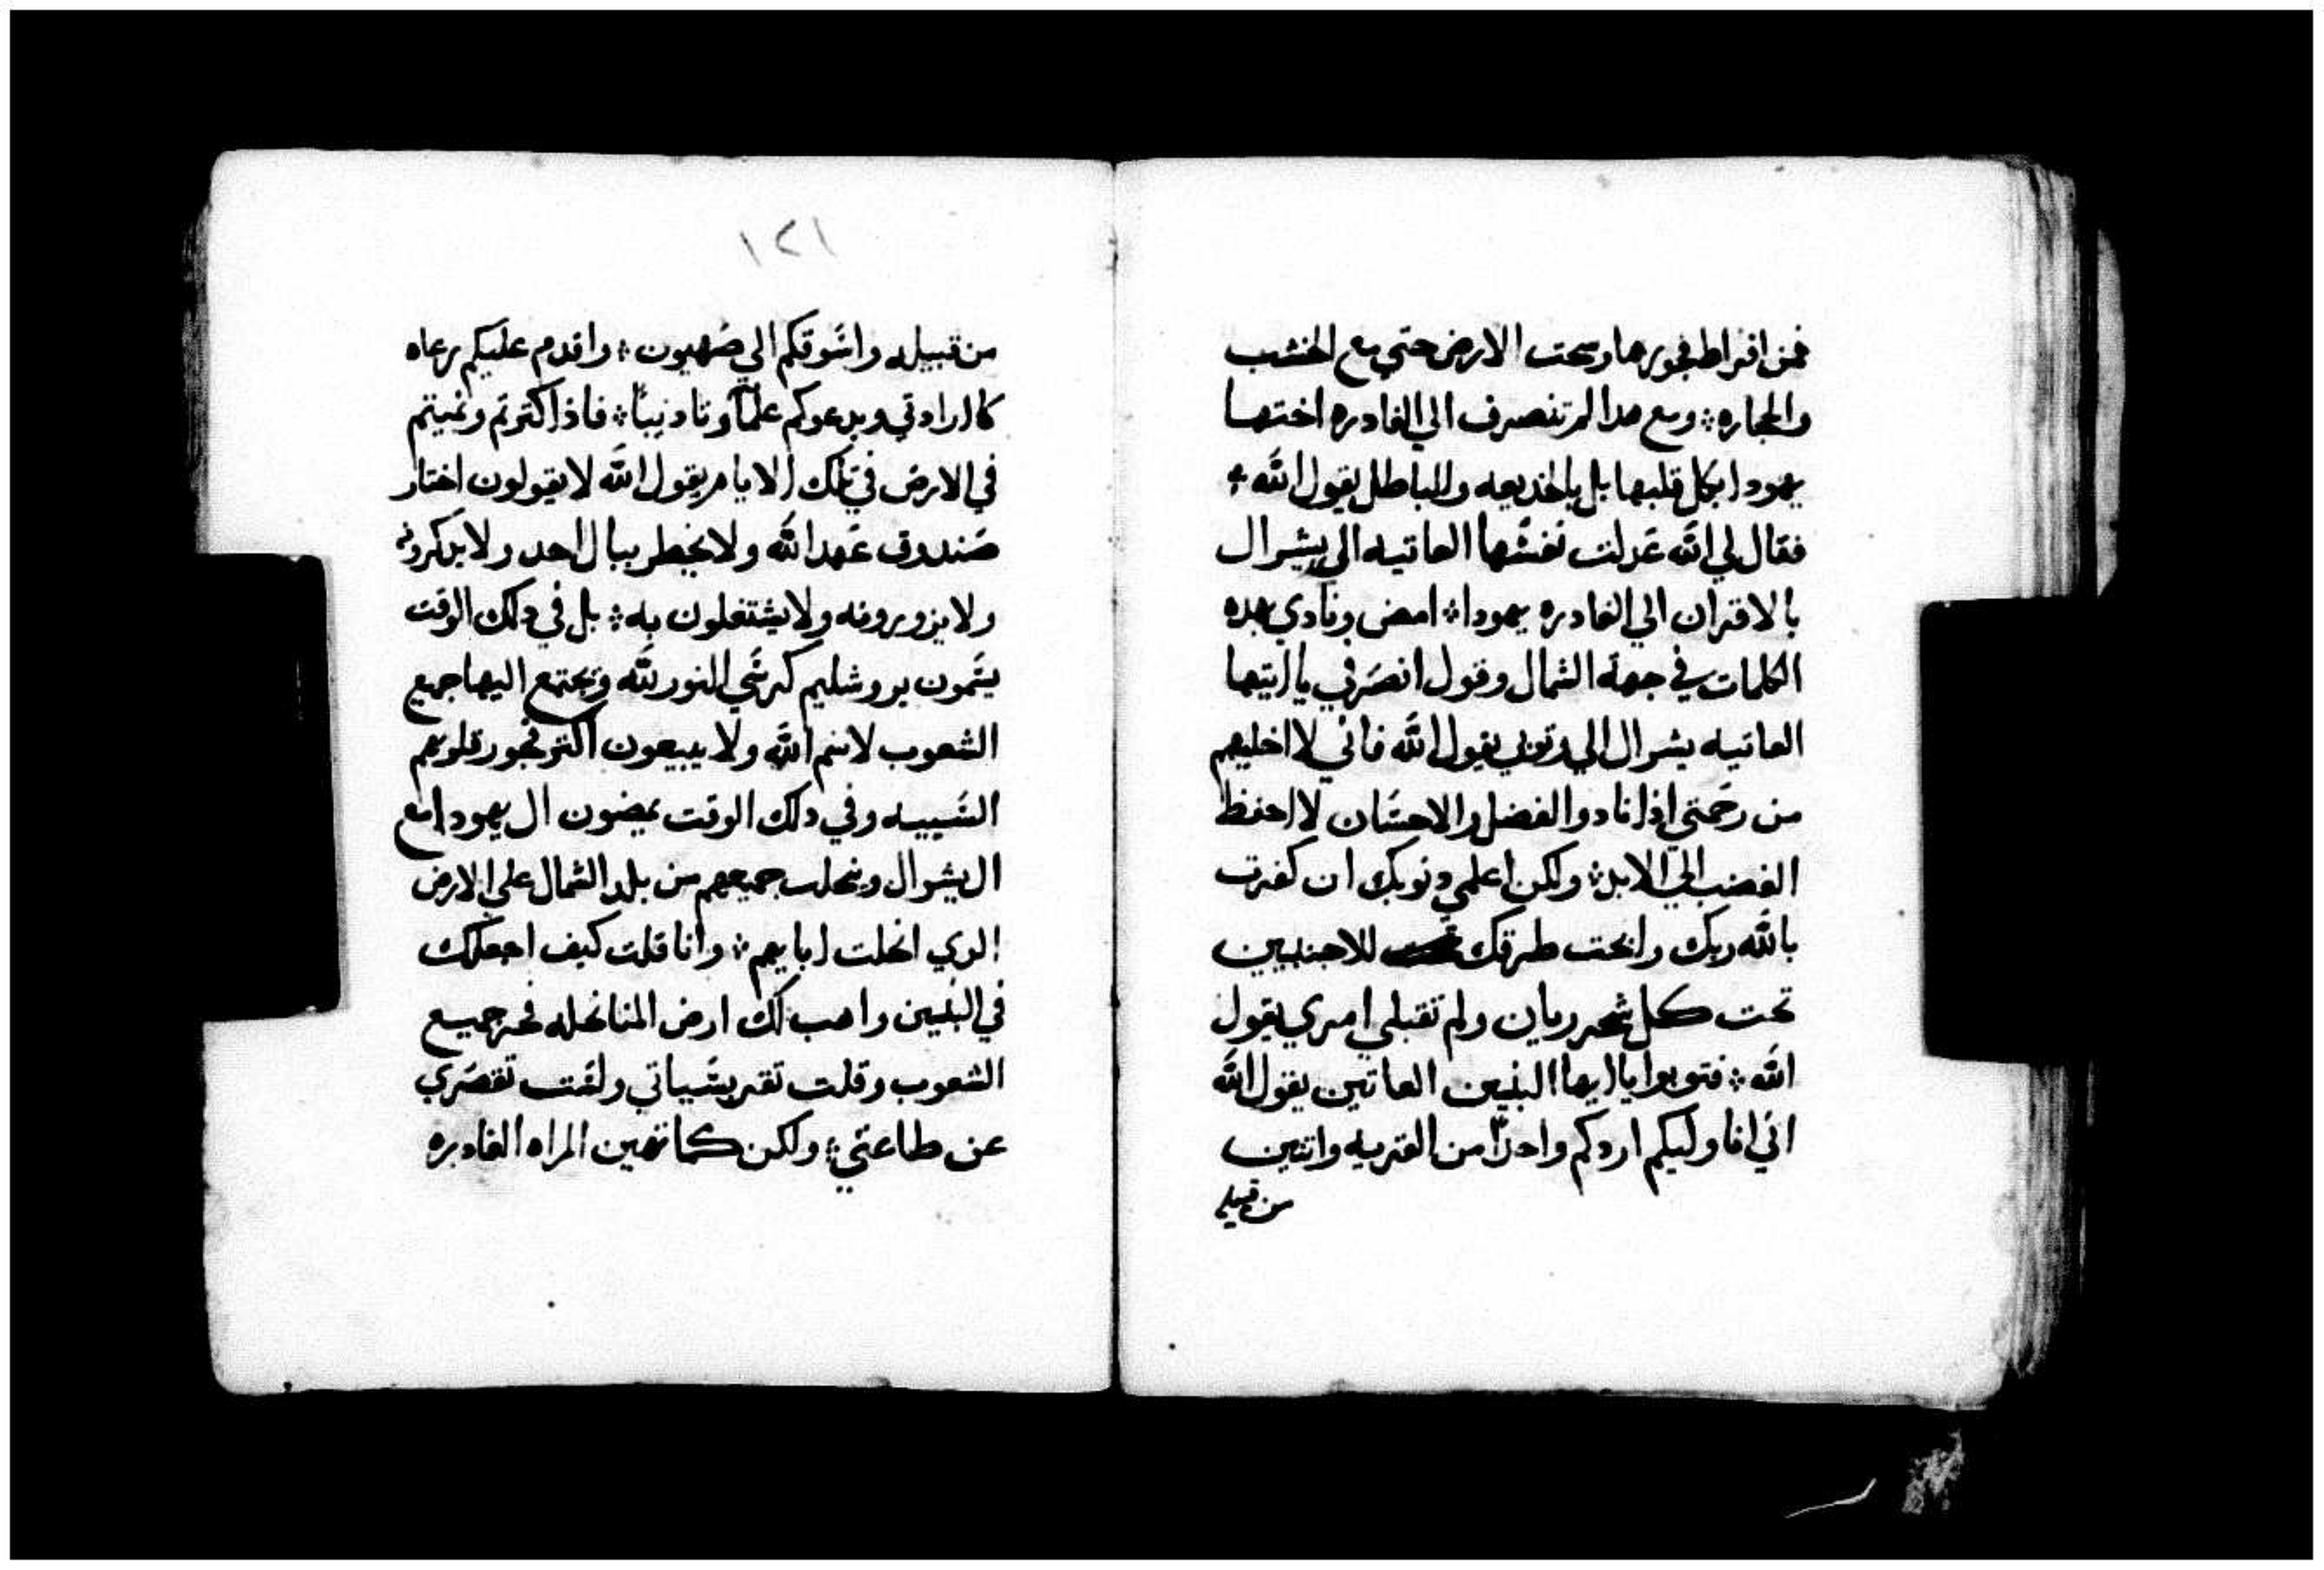 فمن افراط فجورها وسخت الارض حتي مع الخشب
والحجاره ؞ ومع هدا لم تنصرف الي الغادره اختها
يهودا بكل قلبها بل بالخديعه والباطل يقول الله ؞
فقال لي الله عدلت نفسها العاتيه الي يشرال
بالاقتران الي الغادره يهودا ؞ امض ونادي بهده
الكلمات في جهة الشمال وقول انصرفي يا ايتها
العاتيه يشرال الي وتوبي يقول الله فاني لا اخليهم
من رحمتي اذ انا دو الفضل والاحسان لا احفظ
الغضب الي الابد ؞ ولكن اعلمي دنوبك ان كفرت
بالله ربك وابحت طرقك للاجنبيين
تحت كل شجر ريان ولم تقبلي امري يقول
الله ؞ فتوبوا يا ايها البنين العاتين يقول الله
اني انا وليكم اردكم واحدًا من القريه واتنين
من قبيله
١٢١
من قبيله واسوقكم الي صهيون ؞ واقدم عليكم رعاه
كارادتي ويرعوكم علمًا وتاديبًا ؞ فاذا كترتم ونميتم
في الارض في تلك الايام يقول الله لا يقولون اختار
صندوق عهد الله ولا يخطر ببال احد ولا يدكروه
ولا يزورونه ولا يشتغلون به ؞ بل في دلك الوقت
يسمون يروشليم كرسي النور لله ويجتمع اليها جميع
الشعوب لاسم الله ولا يبيعون اكتر فجور قلوبهم
السييه وفي دلك الوقت يمضون ال يهودا مع
ال يشرال وينحلب جميعهم من بلد الشمال علي الارض
الدي انحلت ابايهم ؞ وانا قلت كيف اجعلك
في البنين واهب لك ارض المنا نحله فخر جميع
الشعوب وقلت تقر بسياتي ولست تقصري
عن طاعتي ؞ ولكن كما تهين المراه الغادره